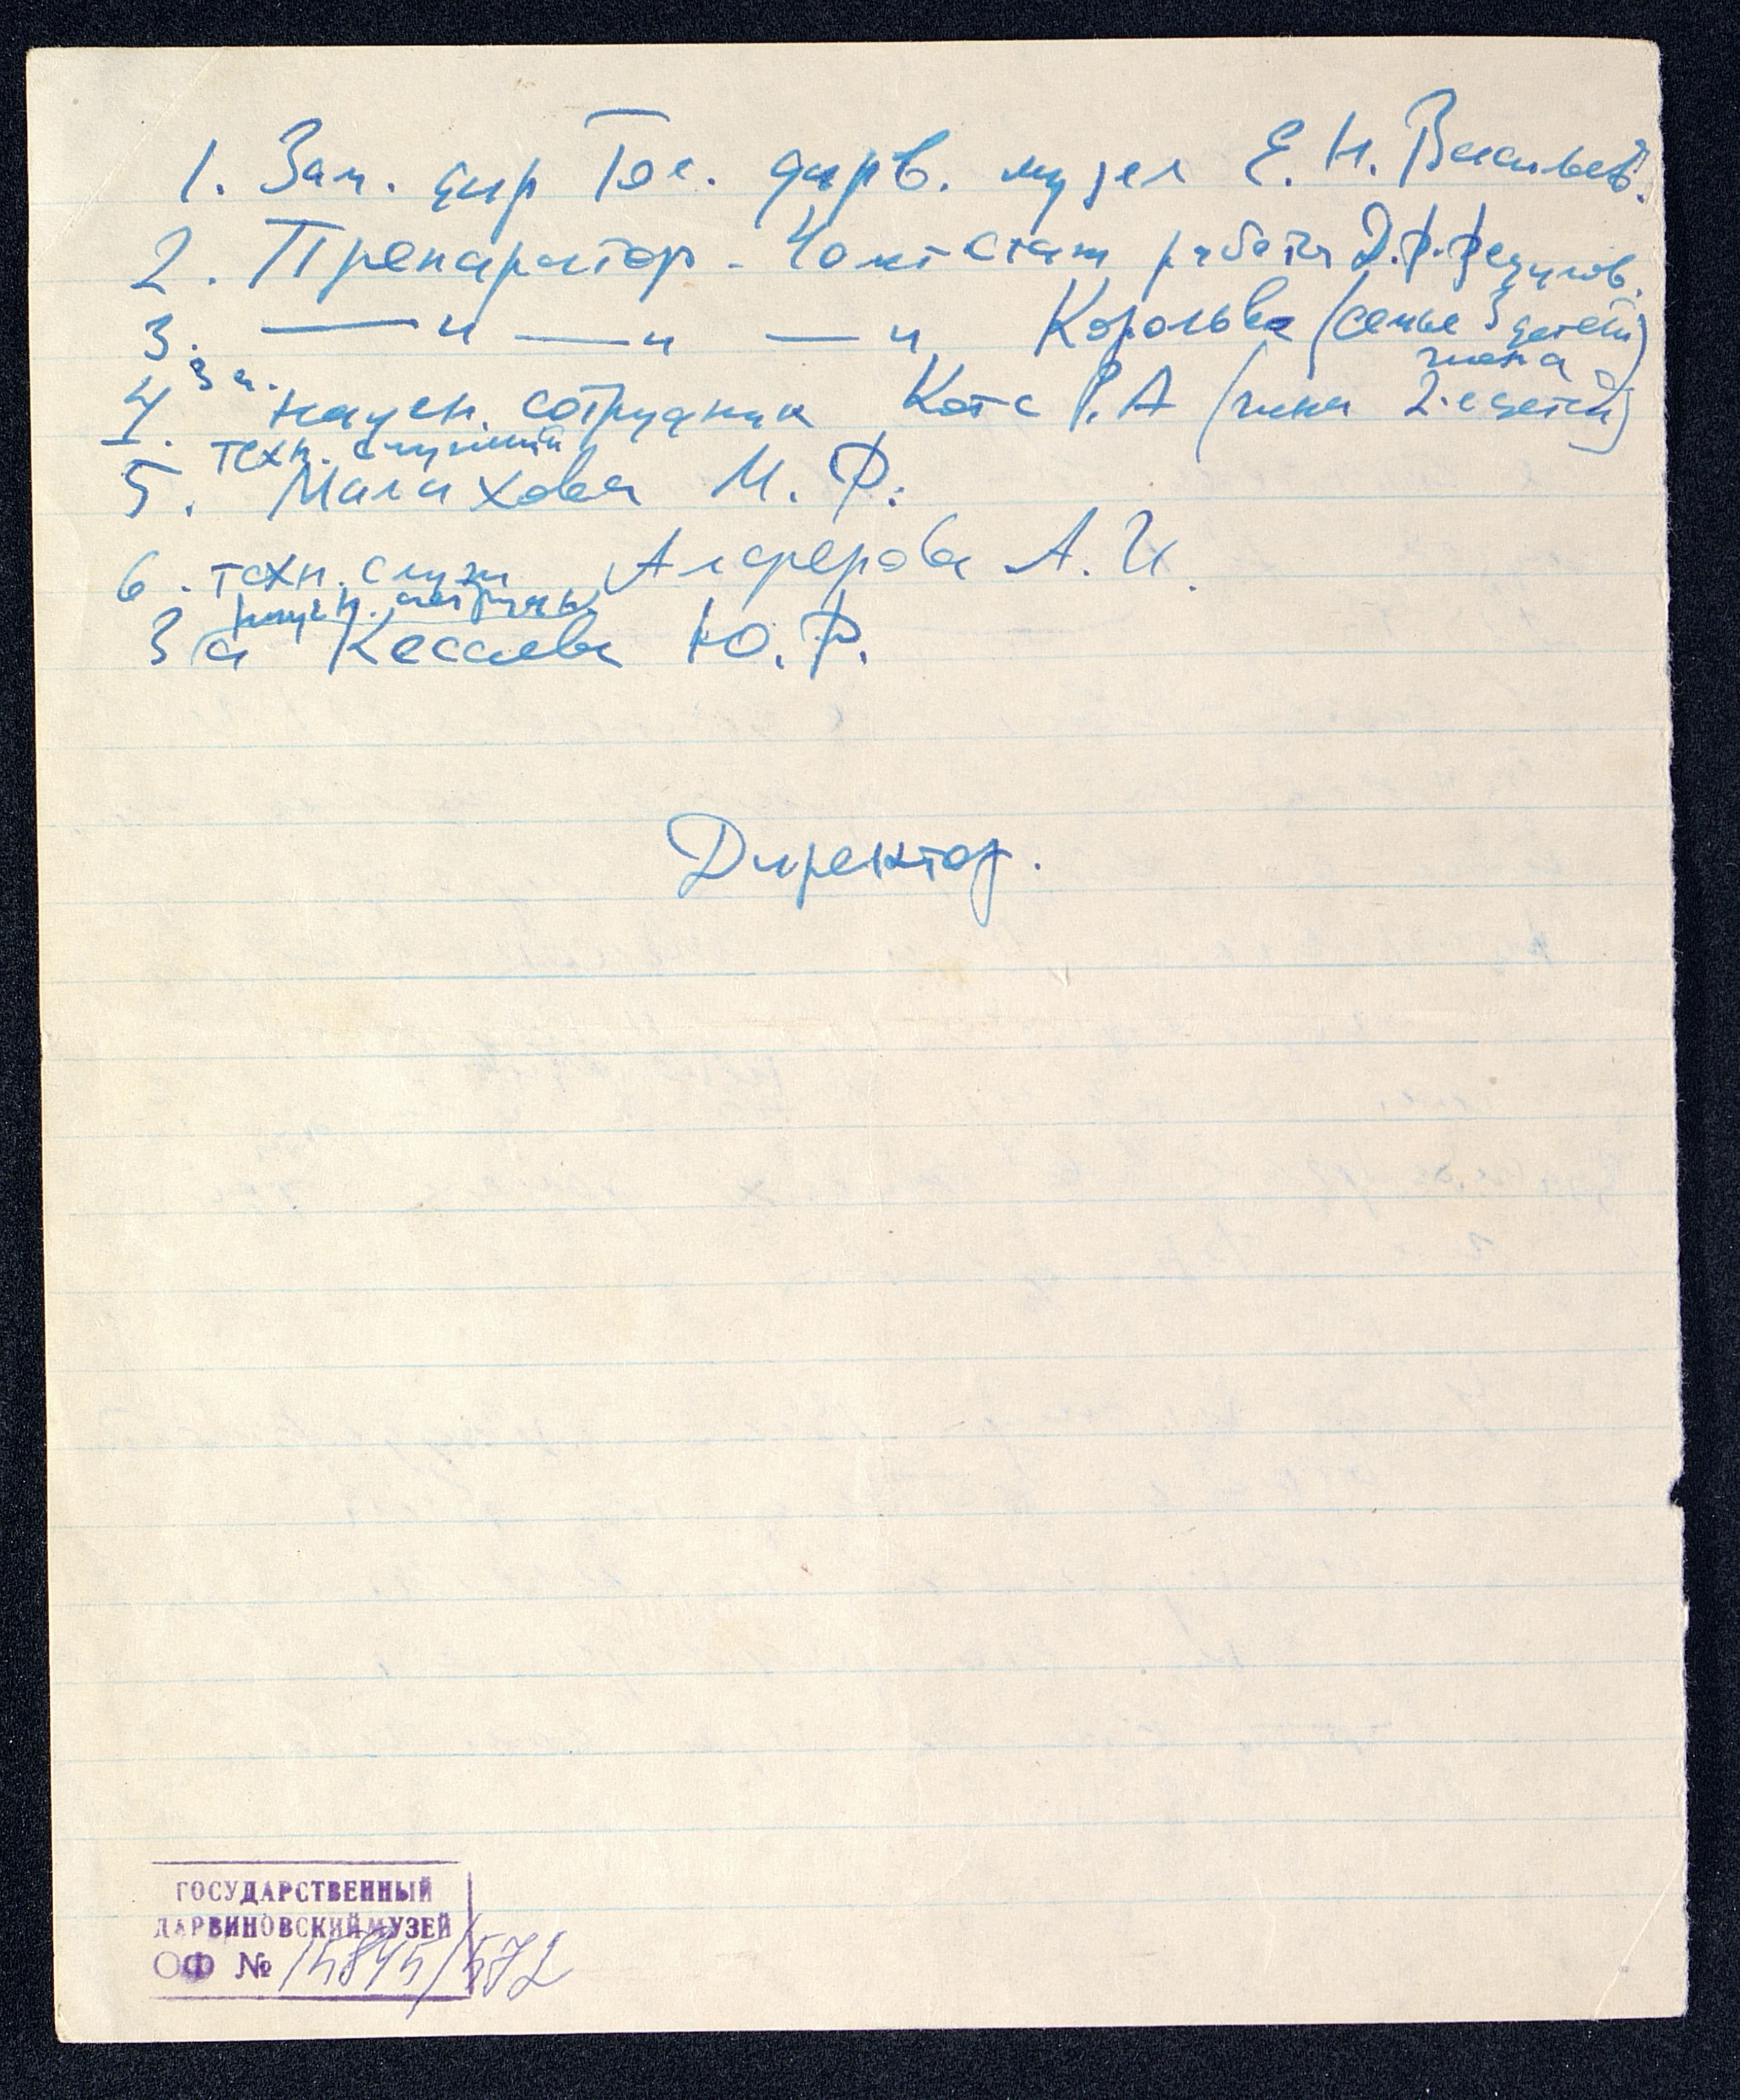 1. Зам. дир Гос. дарв. музея Е. Н. Васильев.
2. Препаратор. стаж работы Д. Ф. Федулов.
3. — " — " — " Королева (семья 3 детей)
жена
4. 3 а. научн. сотрудник Котс Р. А (жена 2-е детей)
техн. служащий
5. Малахова М. Ф.
6. техн. служ Алферова А. И.
научн. сотрудн
3 а Кесаева Ю. Ф.
Директор.
ГОСУДАРСТВЕННЫЙ
ДАРВИНОВСКИЙ МУЗЕЙ
ОФ № 15845/572